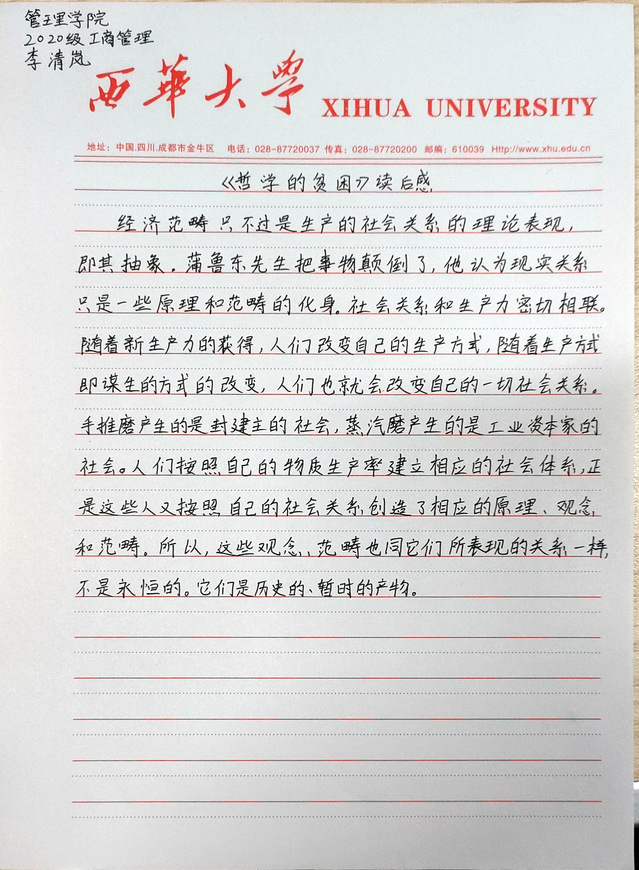 管理学院
2020级工商管理
李清岚
西華大學 XIHUA UNIVERSITY
地址：中国.四川.成都市金牛区 电话：028-87720037 传真：028-87720200 邮编：610039 Http://www.xhu.edu.cn
《哲学的贫困》读后感
经济范畴只不过是生产的社会关系的理论表现，
即其抽象。蒲鲁东先生把事物颠倒了，他认为现实关系
只是一些原理和范畴的化身。社会关系和生产力密切相联。
随着新生产力的获得，人们改变自己的生产方式，随着生产方式
即谋生的方式的改变，人们也就会改变自己的一切社会关系。
手推磨产生的是封建主的社会，蒸汽磨产生的是工业资本家的
社会。人们按照自己的物质生产率建立相应的社会体系，正
是这些人又按照自己的社会关系创造了相应的原理、观念
和范畴。所以，这些观念、范畴也同它们所表现的关系一样，
不是永恒的。它们是历史的、暂时的产物。